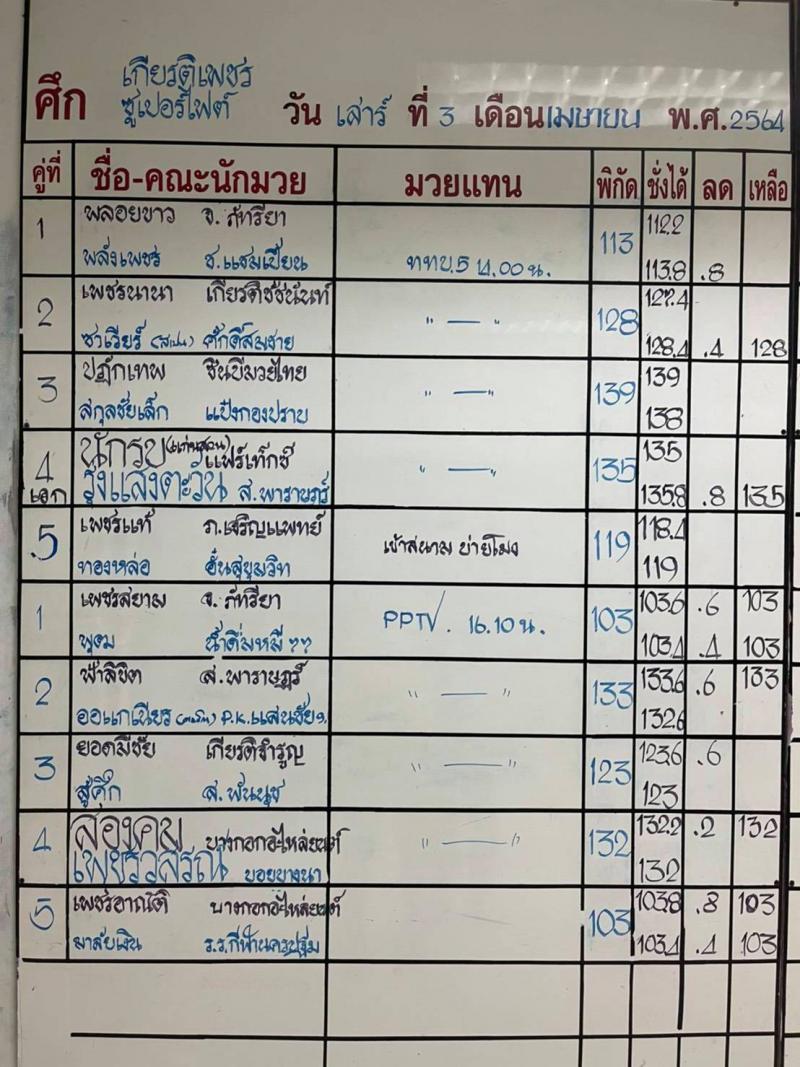 ศึก เกียรติเพชร
ซูเปอร์ไฟต์ วัน เสาร์ ที่ 3 เดือน เมษายน พ.ศ. 2564
คู่ที่ ชื่อ-คณะนักมวย มวยแทน พิกัด ชั่งได้ ลด เหลือ
1 พลอยขาว จ. ภัทรียา 112.2
พลังเพชร ช.แชมเปี้ยน ททบ.5 14.00 น. 113 113.8 .8
2 เพชรนานา เกียรติชัชนันท์ 127.4
ซาเวียร์ (สเปน) ศักดิ์สมชาย " — " 128 128.4 .4 128
3 ปฏักเทพ ซินบีมวยไทย 139
สกุลชัยเล็ก แป๋งกองปราบ " — " 139 138
4 นักรบ แฟร์เท็กซ์ 135
เอก รุ่งแสงตะวัน ส.พารายฎร์ " — " 135 135.8 .8 135
5 เพชรแท้ ภ.เจริญแพทย์ 118.4
ทองหล่อ ฮั่นสุขุมวิท เข้าสนาม บ่ายโมง 119 119
1 เพชรสยาม จ. ภัทรียา 103.6 .6 103
พุดม น้ำดื่มหมี ?? PPTV. 16.10 น. 103 103.4 .4 103
2 ฟ้าลิขิต ส.พารายฎร์ 133.6 .6 133
P.K.แสนชัยฯ. " — " 133 132.6
3 ยอดมีชัย เกียรติจำรูญ 123.6 .6
สู้ศึก ส.พันนุช " — " 123 123
4 สองคม บางกอกอะไหล่ยนต์ 132.2 .2 132
เพชรวสรณ์ บอยบางนา " — " 132 132
5 เพชรอาณัติ บางกอกอะไหล่ยนต์ 103.8 .8 103
มาลัยเงิน ร.ร.กีฬานครปฐม 103 103.4 .4 103